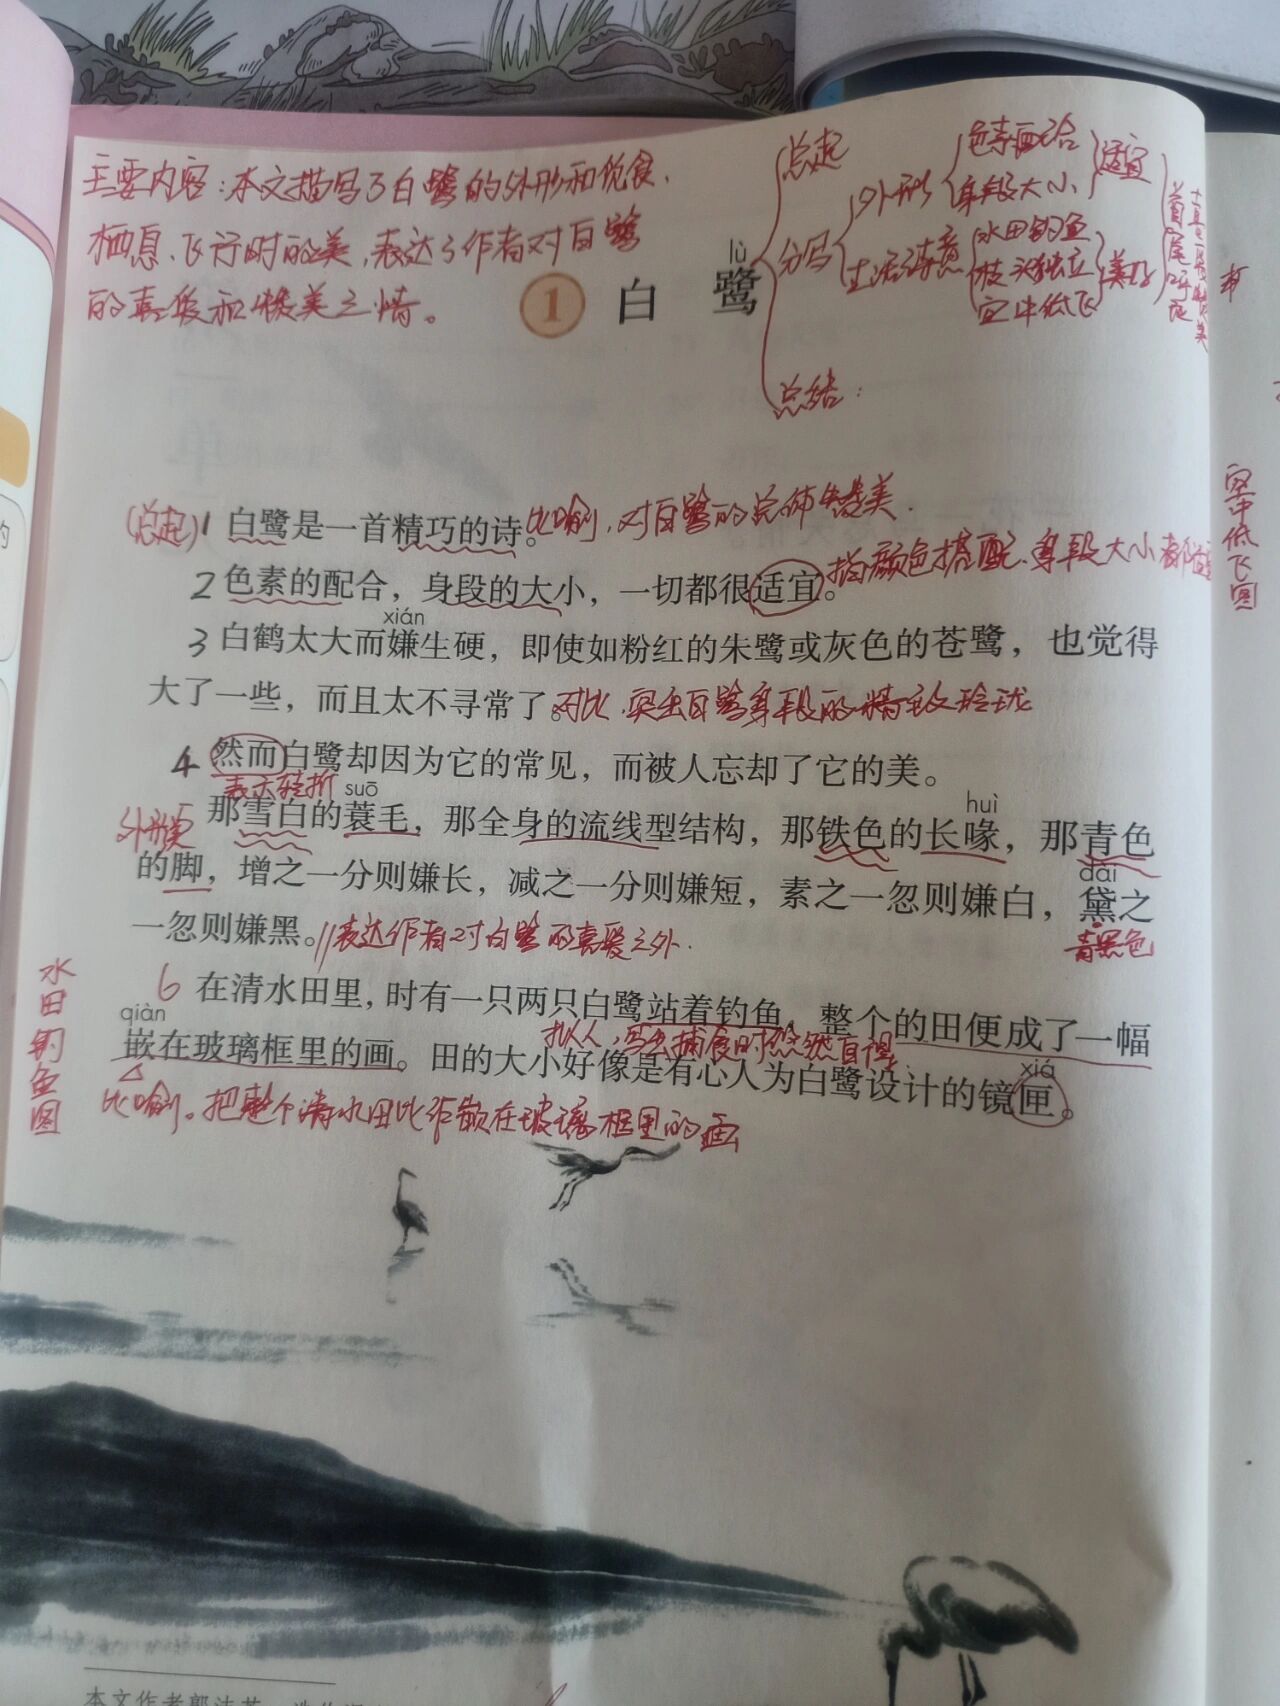 主要内容:本文描写了白鹭的外形和优食、
栖息、飞行时的美,表达了作者对白鹭
的喜爱和赞美之情。
总起
分写
外形
色素配合
身段大小
适宜
生活诗意
水田钓鱼
枝头独立
空中低飞
美好
首尾呼应
总结:
1
lù
白 鹭
(总起)1 白鹭是一首精巧的诗。比喻,对白鹭的总体赞美.
指颜色搭配、身段大小都适宜
2 色素的配合,身段的大小,一切都很适宜。
xián
3 白鹤太大而嫌生硬,即使如粉红的朱鹭或灰色的苍鹭,也觉得
大了一些,而且太不寻常了。对比,突出白鹭身段的精致玲珑
4 然而白鹭却因为它的常见,而被人忘却了它的美。
表示转折
suō
huì
外形美
那雪白的蓑毛,那全身的流线型结构,那铁色的长喙,那青色
dài
的脚,增之一分则嫌长,减之一分则嫌短,素之一忽则嫌白,黛之
一忽则嫌黑。//表达作者对白鹭的喜爱之外.
青黑色
6 在清水田里,时有一只两只白鹭站着钓鱼,整个的田便成了一幅
qiàn
拟人,写出捕食时悠然自得
xiá
嵌在玻璃框里的画。田的大小好像是有心人为白鹭设计的镜匣。
比喻。把整个清水田比作嵌在玻璃框里的画
水田钓鱼图
空中低飞图
的
单
本文作者郭沫若,